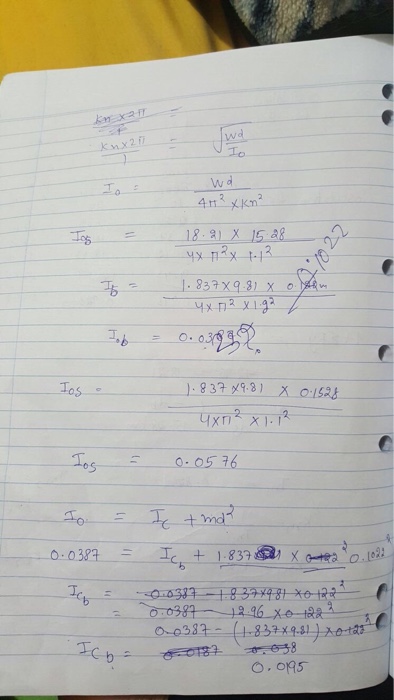 Kn × 2π =
Kn × 2π / 1 = √(Wd / I₀)
I₀ = Wd / 4π² × Kn²
= 18.21 × 15.28 / 4 × π² × 1.1²
I_b = 1.837 × 9.81 × 0.1022 / 4 × π² × 1.9²
I₀b = 0.03
I₀s = 1.837 × 9.81 × 0.1528 / 4 × π² × 1.1²
I₀s = 0.0576
I₀ = I_c + md²
0.0387 = I_cb + 1.837 × 0.122² 0.1022²
I_cb = 0.0387 - 1.837×9.81 × 0.122²
= 0.0387 - 12.96 × 0.122²
0.0387 - (1.837×9.81) × 0.122²
I_cb = 0.0187 0.038
0.0195